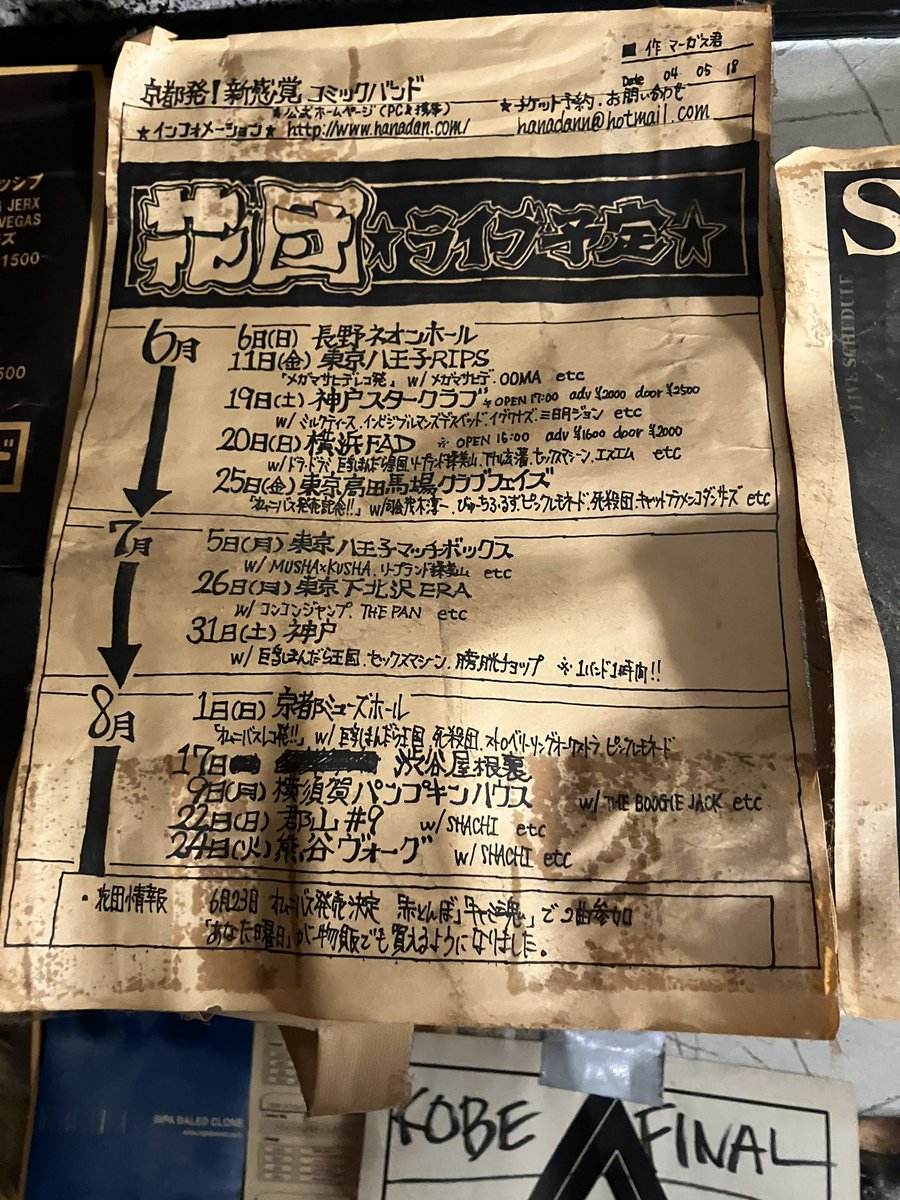 ■ 作 マーガス君
Date 04 05 18
京都発!新感覚 コミックバンド
公式ホームページ(PC&携帯)
★チケット予約.お問い合わせ
★インフォメーション★ http://www.hanadan.com/
hanadann@hotmail.com
花団 ★ライブ予定★
6月
6日(日) 長野ネオンホール
11日(金) 東京八王子RIPS
「メガマサヒデレコ発」 w/ メガマサヒデ.OOMA etc
19日(土) 神戸スタークラブ ※OPEN 17:00 adv ¥2000 door ¥2500
w/ ミルクティース.インビジブルマンズデスベッド.イヴクナズ.三日月ジョン etc
20日(日) 横浜FAD ※ OPEN 16:00 adv ¥1600 door ¥2000
w/ドラ・ドラゴ.巨乳まんだら王国.セックスマシーン.エスエム etc
25日(金) 東京高田馬場クラブフェイズ
「オムニバス発売記念!!」 w/ びゅーちふるず.ピンクレモネード.死殺団.キャットフラメンコダンサーズ etc
7月
5日(月) 東京八王子マッチボックス
w/ MUSHA×KUSHA. etc
26日(月) 東京下北沢ERA
w/ コンコンジャンプ. THE PAN etc
31日(土) 神戸
w/ 巨乳まんだら王国.セックスマシーン.膀胱チョップ ※1バンド1時間!!
8月
1日(日) 京都ミューズホール
「オムニバスレコ発!!」 w/ 巨乳まんだら王国 死殺団.ストロベリーソングオーケストラ.ピンクレモネード
17日 渋谷屋根裏
9日(月) 横須賀パンプキンハウス w/ THE BOOGIE JACK etc
22日(日) 郡山 #9 w/SHACHI etc
24日(火) 熊谷ヴォーグ w/SHACHI etc
・花団情報 6月23日 オムニバス発売決定 赤とんぼ」 で2曲参加
「あなた曜日」が物販でも買えるようになりました.
ッシブ
JERX
VEGAS
ズ
1500
500
ド
S
LIVE SCHEDULE
KOBE FINAL